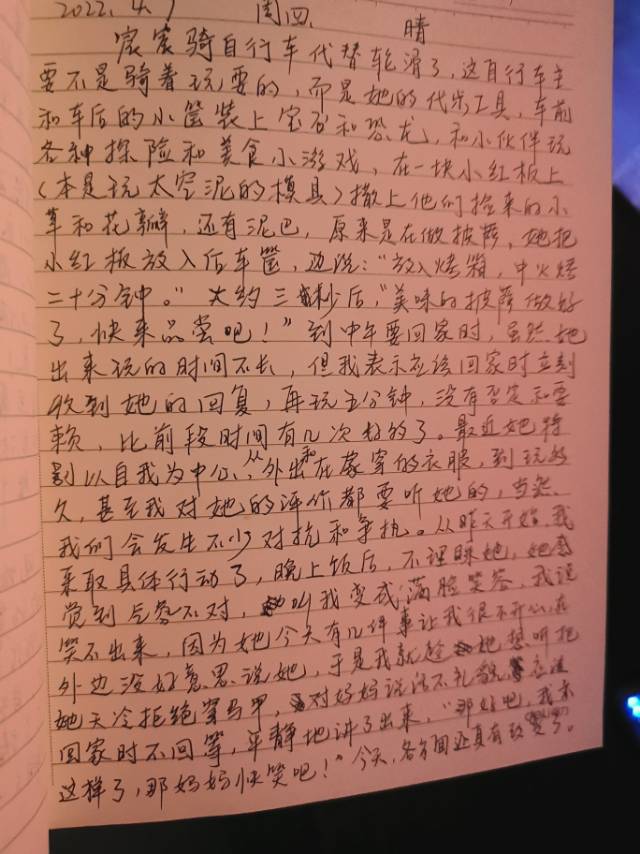 2022.4.7 周四 晴
宸宸骑自行车代替轮滑了,这自行车主
要不是骑着玩耍的,而是她的代步工具,车前
和车后的小筐装上宝石和恐龙,和小伙伴玩
各种探险和美食小游戏,在一块小红板上
(本是玩太空泥的模具)撒上他们捡来的小
草和花瓣,还有泥巴,原来是在做披萨,她把
小红板放入后车筐,边说:“放入烤箱,中火烤
二十分钟。”大约三秒后,“美味的披萨做好
了,快来品尝吧!”到中午要回家时,虽然她
出来玩的时间不长,但我表示应该回家时立刻
收到她的回复,再玩五分钟,没有否定和耍
赖,比前段时间有几次好的了。最近她特
别以自我为中心,从外出和在家穿的衣服,到玩多
久,甚至我对她的评价都要听她的,当然,
我们会发生不少对抗和争执。从昨天开始,我
采取具体行动了,晚上饭后,不理睬她,她感
觉到气氛不对,叫我变成满脸笑容,我说
笑不出来,因为她今天有几件事让我很不开心,在
外边没好意思说她,于是我就趁她想听把
她天冷拒绝穿马甲,对妈妈说话不礼貌,应该
回家时不回等,平静地讲了出来,“那好吧,我不
这样了,那妈妈快笑吧!”今天,各方面还真有改变了。